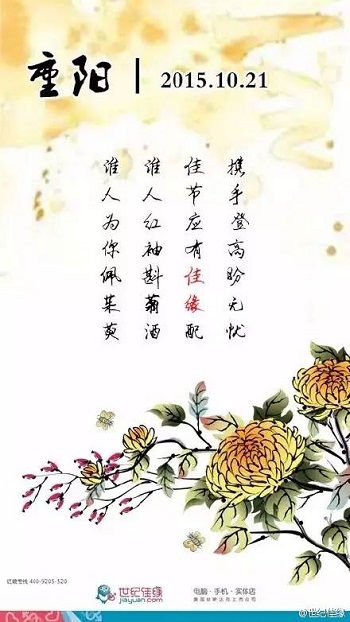 重阳 | 2015.10.21
携手登高盼无忧
佳节应有佳缘配
谁人红袖斟菊酒
谁人为你佩茱萸
红娘专线 400-9205-520
世纪佳缘
jiayuan.com
电脑·手机·实体店
@世纪佳缘